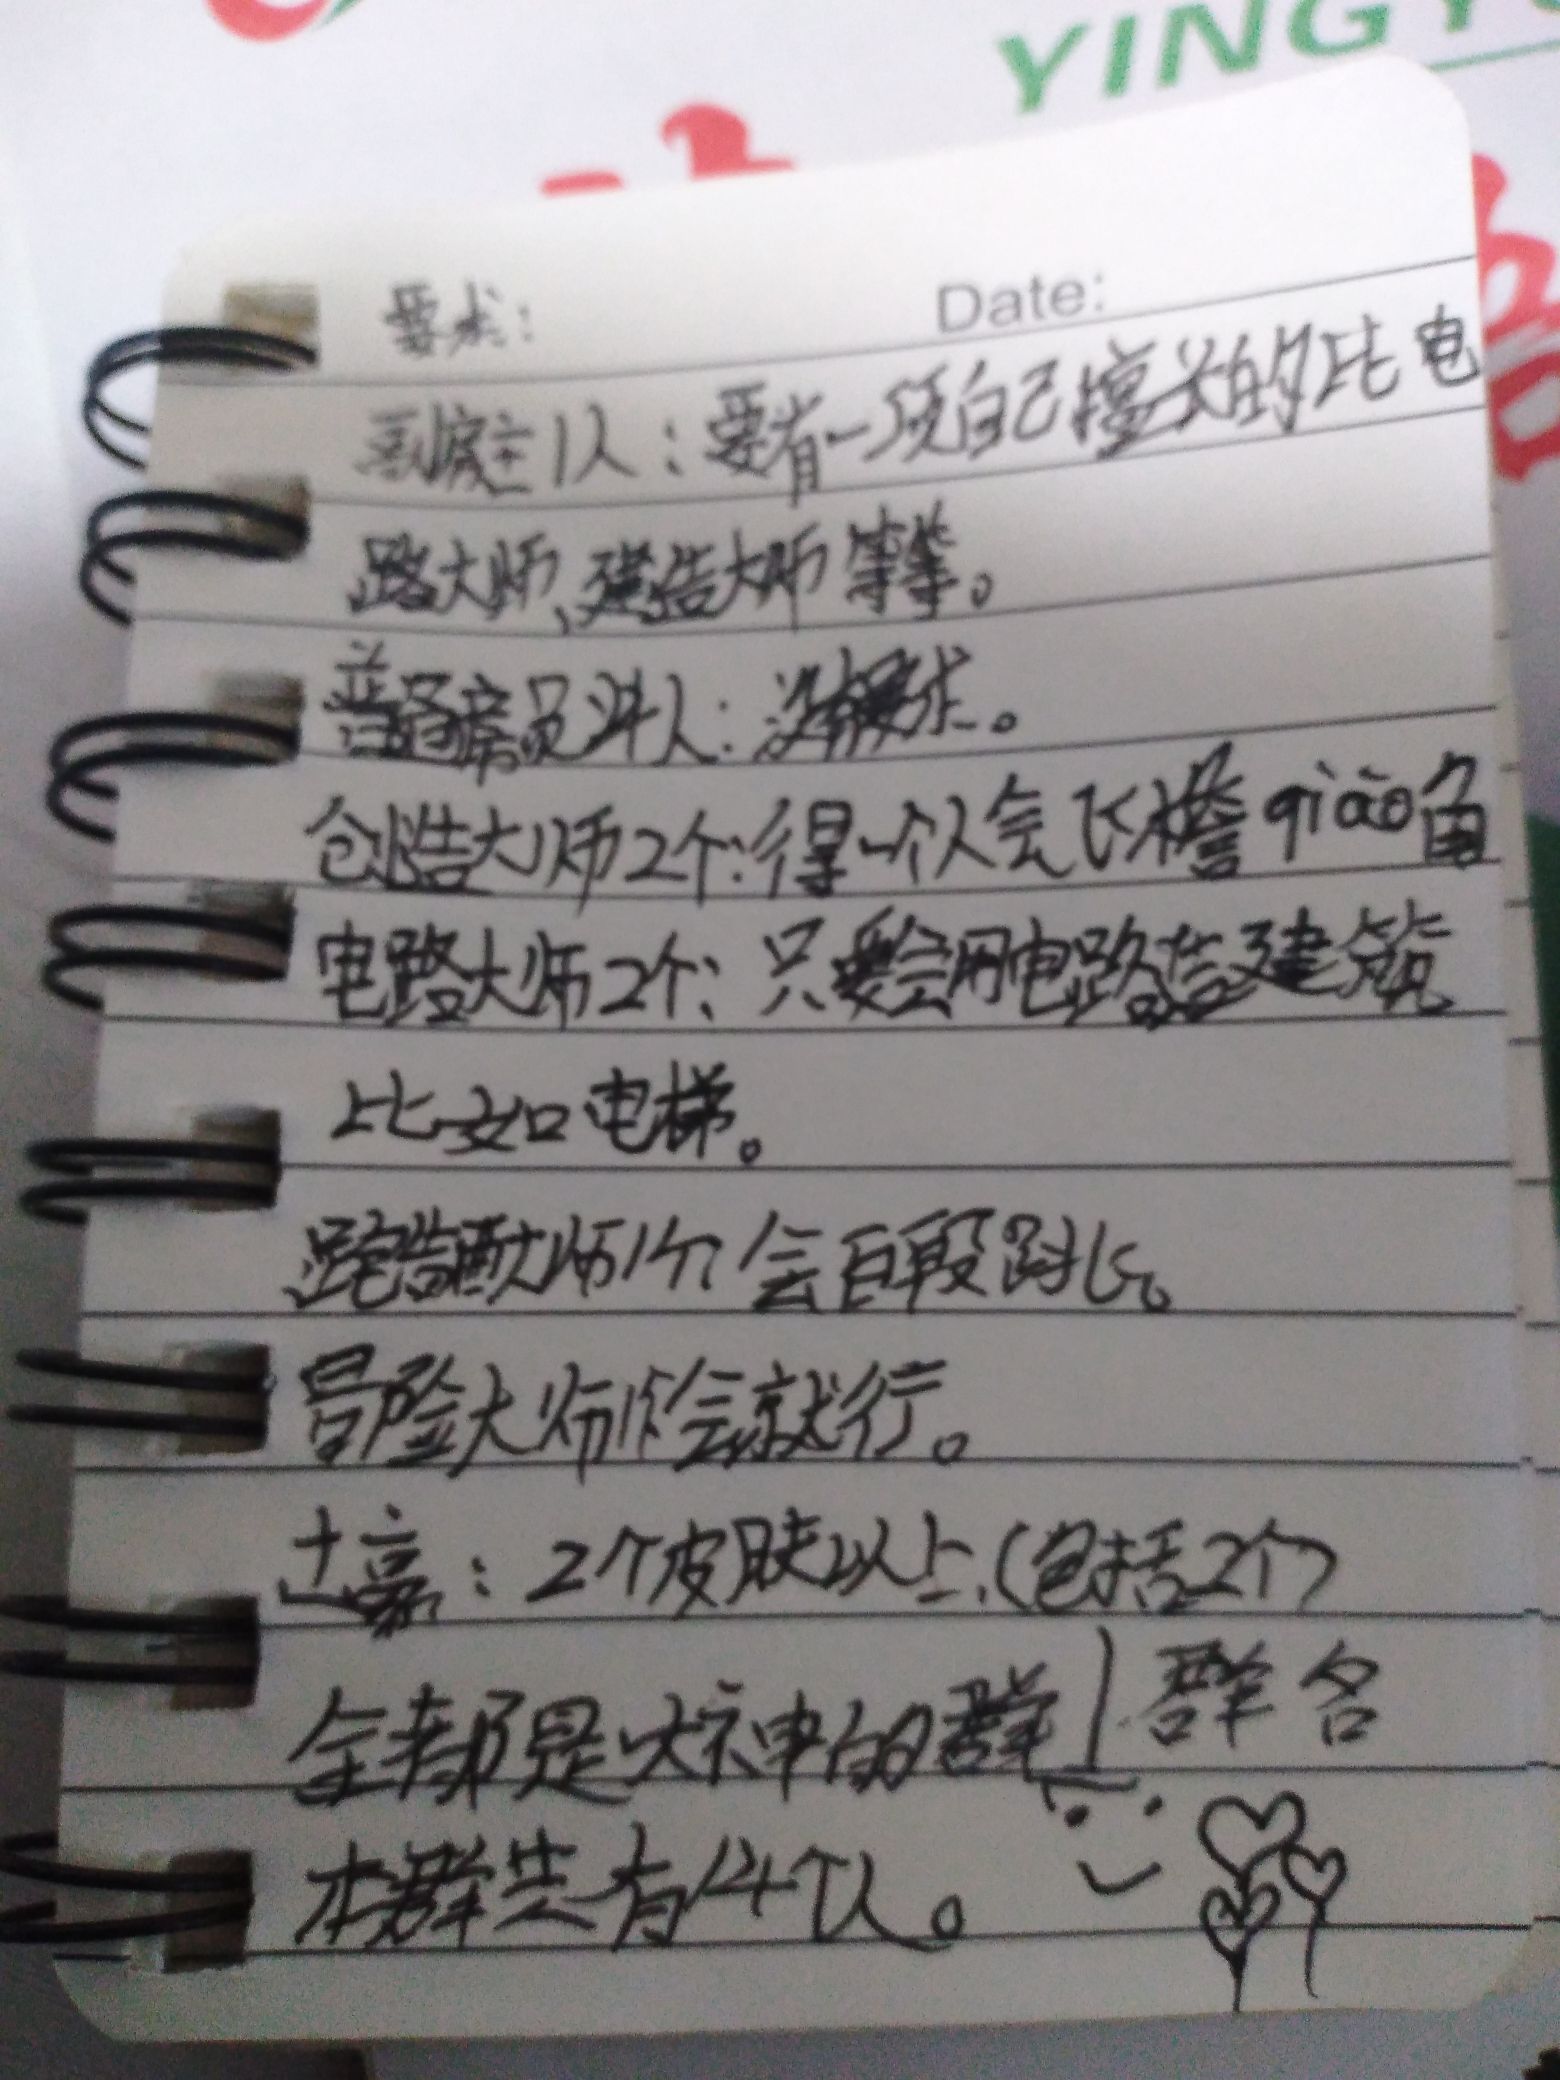 YINGY
要求：
Date:
副房主1人：要有一项自己擅长的比电
路大师、建造大师等等。
普通房员4人：没有要求。
创造大师2个：得一个人会飞檐qiào角
电路大师2个：只要会用电路造建筑
比如电梯。
跑酷大师1个会百段跳长。
冒险大师1个会就行。
土豪：2个皮肤以上（包括2个）
全都是大神的群 群名
本群共有14个人。